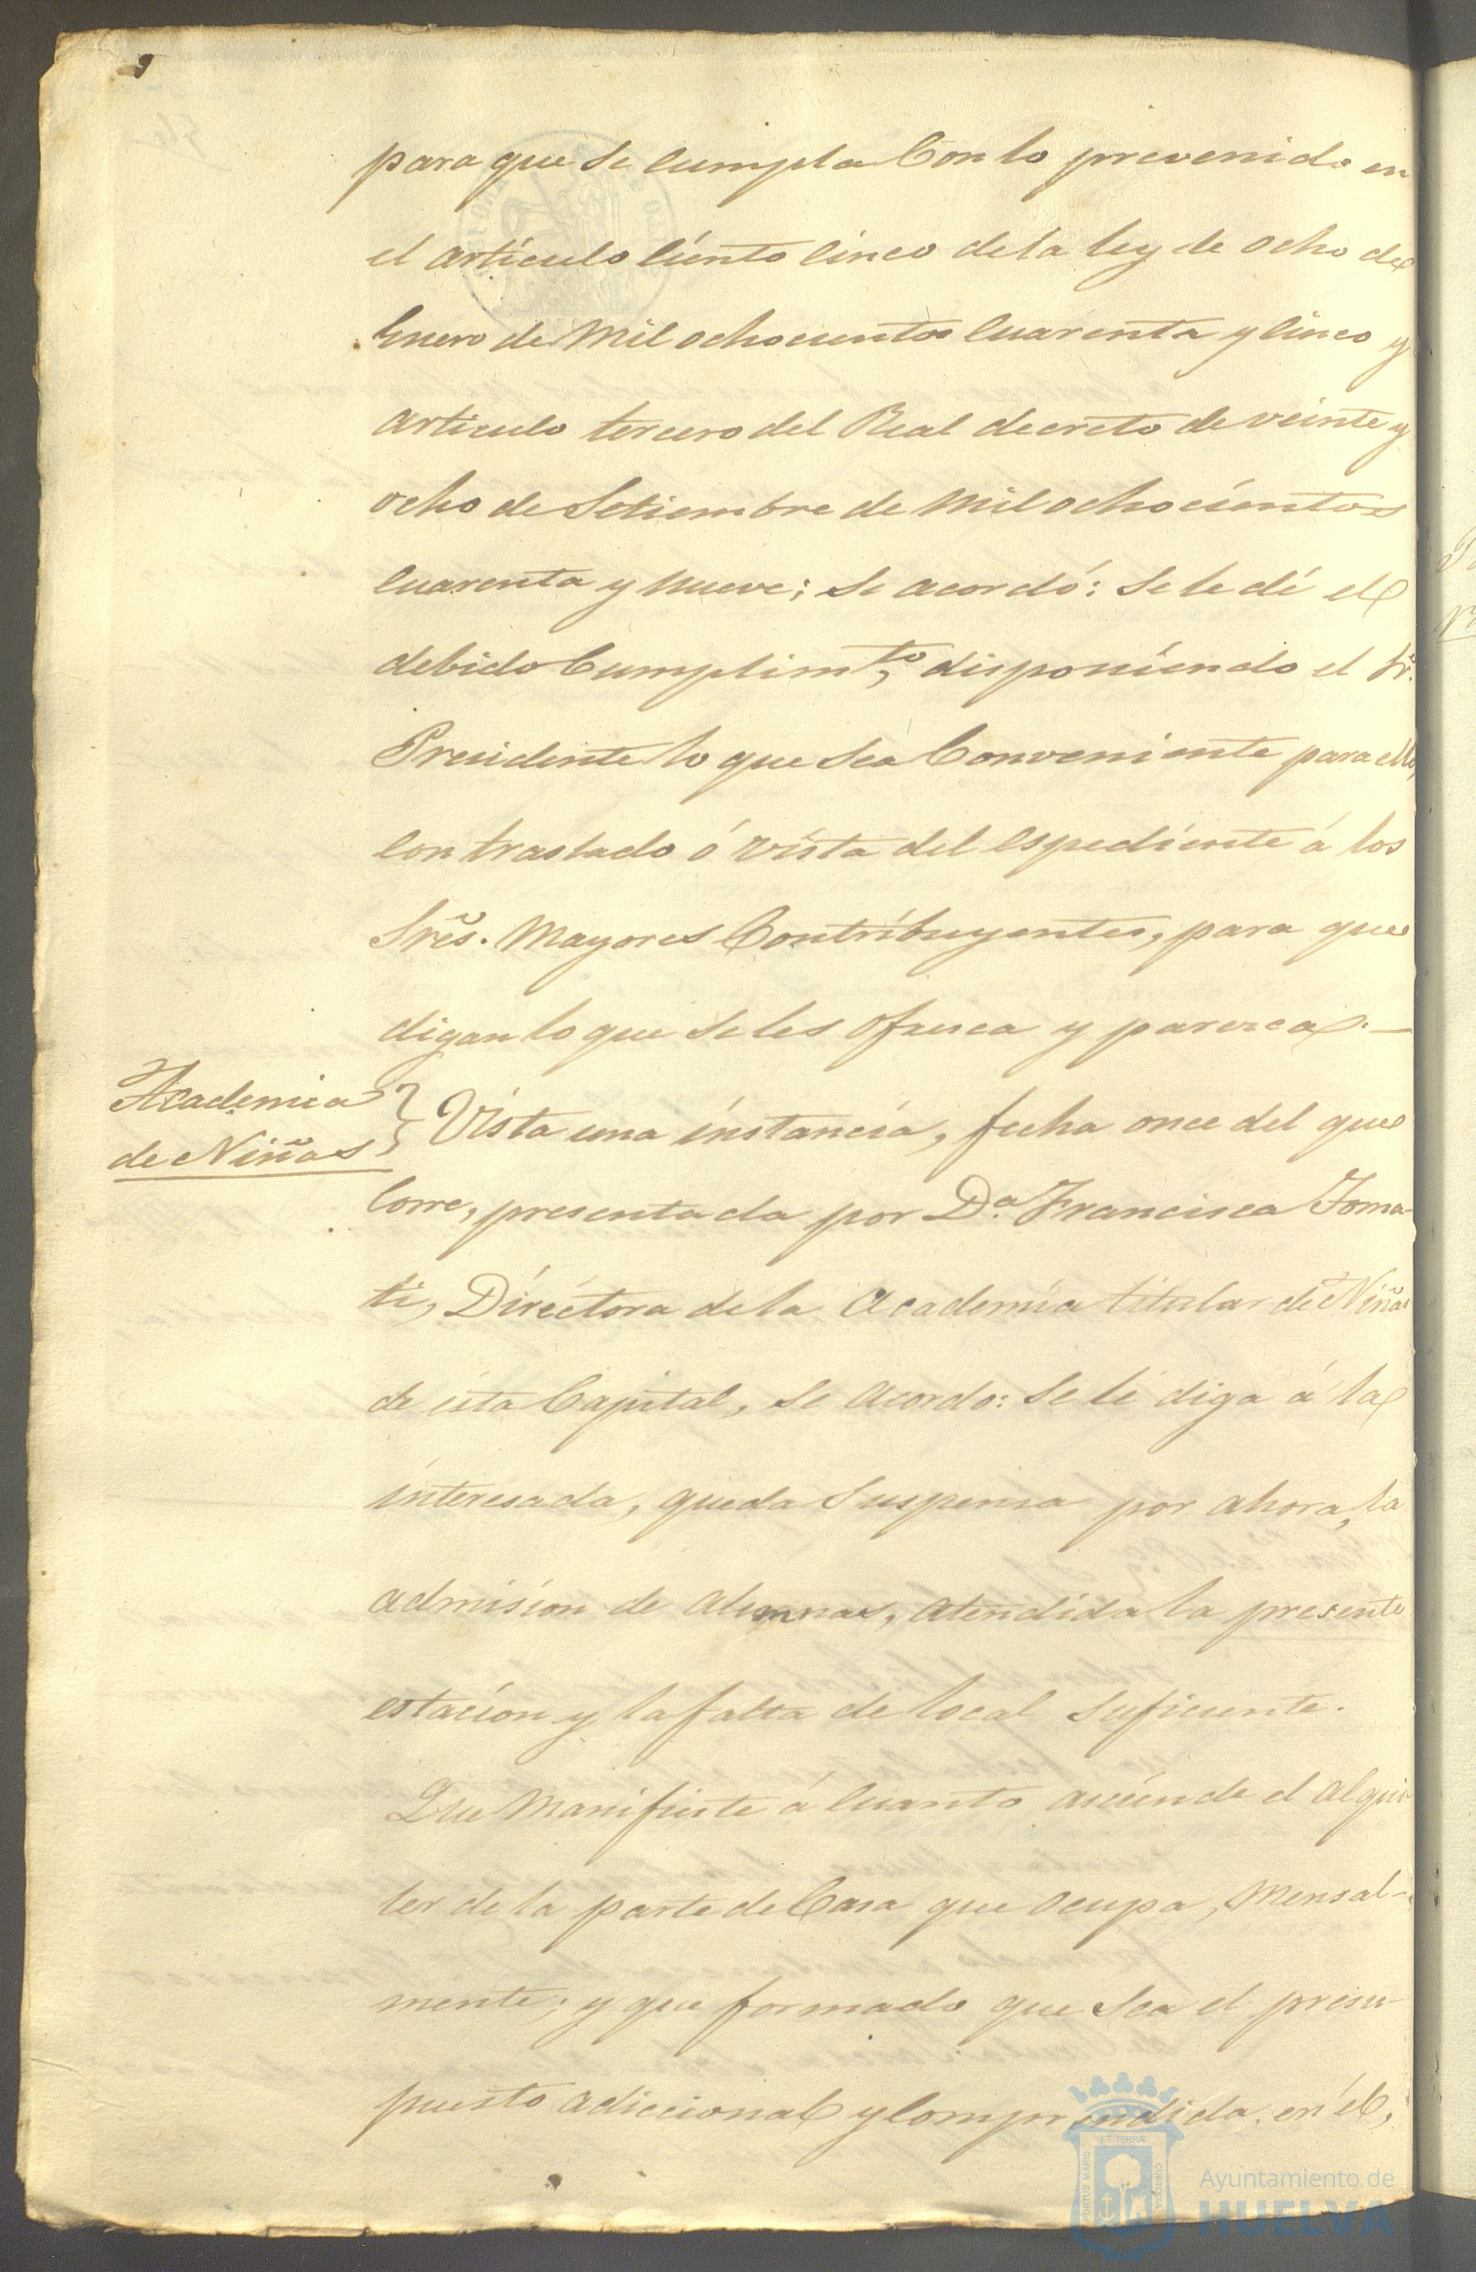 para que se cumpla con lo prevenido en
el artículo ciento cinco de la ley de ocho de
Enero de mil ochocientos cuarenta y cinco y
articulo tercero del Real decreto de veinte y
ocho de Setiembre de mil ochocientos
cuarenta y nueve; se acordó: se le dé el
debido cumplimto, disponiendo el Sr.
Presidente lo que sea conveniente para ello,
con traslado ó vista del espediente á los
Sres. mayores contribuyentes, para que
digan lo que se les ofresca y paresca.—
Academia
de Niñas
Vista una instancia, fecha once del que
corre, presentada por Da. Francisca Toma-
ti, Diréctora de la Academia titular de Niñas
de ésta Capital, se acordo: se le diga á la
interesada, queda suspensa por ahora, la
admision de alumnas, atendida la presente
estacion y la falta de local suficiente.
Que manifieste á cuanto asciende el alqui
ler de la parte de casa que ocupa, mensal-
mente; y que formado que sea el presu-
puesto adiccional y comprendida en él,
PORTUS MARIS
ET TERRAE
CUSTODIA
Ayuntamiento de
HUELVA